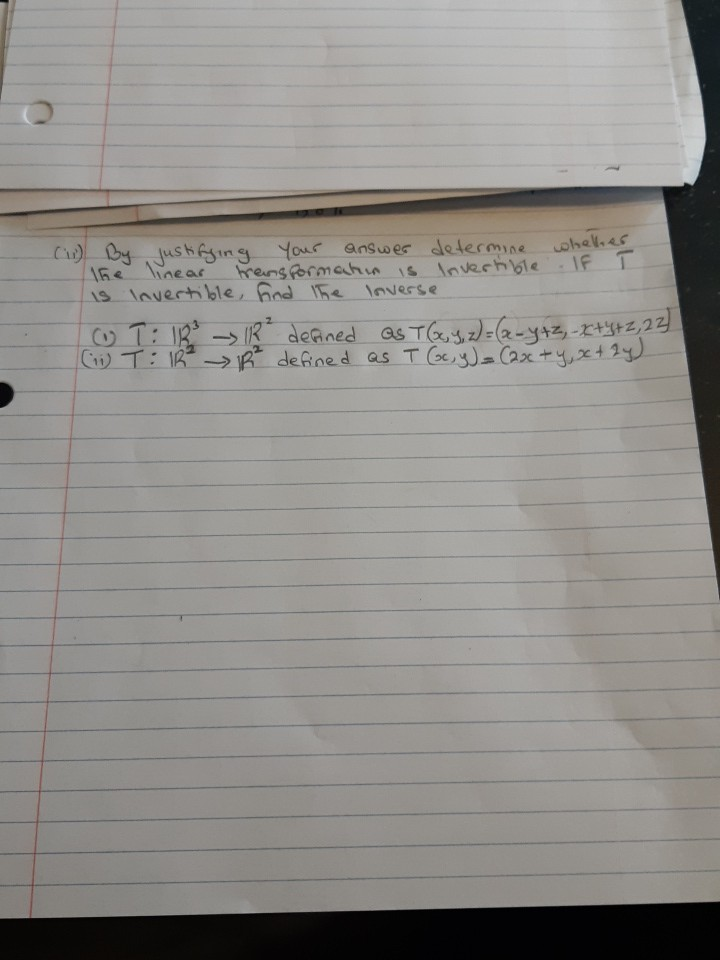 (ii) By justifying your answer determine whether
the linear transformation is Invertible. If T
is Invertible, find the Inverse
(i) T: ℝ³ → ℝ² defined as T(x,y,z)=(x-y+z, -x+y+z, 2z)
(ii) T: ℝ² → ℝ² defined as T(x,y)=(2x+y, x+2y)